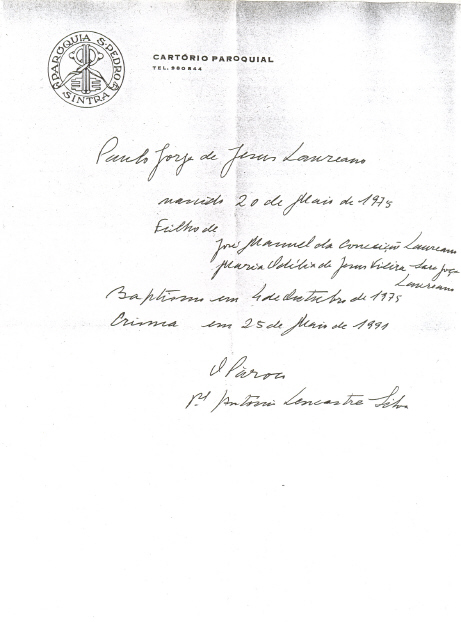 PARÓQUIA S. PEDRO
SINTRA
CARTÓRIO PAROQUIAL
TEL. 980844
Paulo Jorge de Jesus Laureano
nascido 20 de Maio de 1975
Filho de
José Manuel da Conceição Laureano
Maria Odília de Jesus Vieira
Laureano
Baptismo em 4 de Outubro de 1975
Crisma em 25 de Maio de 1991
O Pároco
Pe António Lencastre Silva